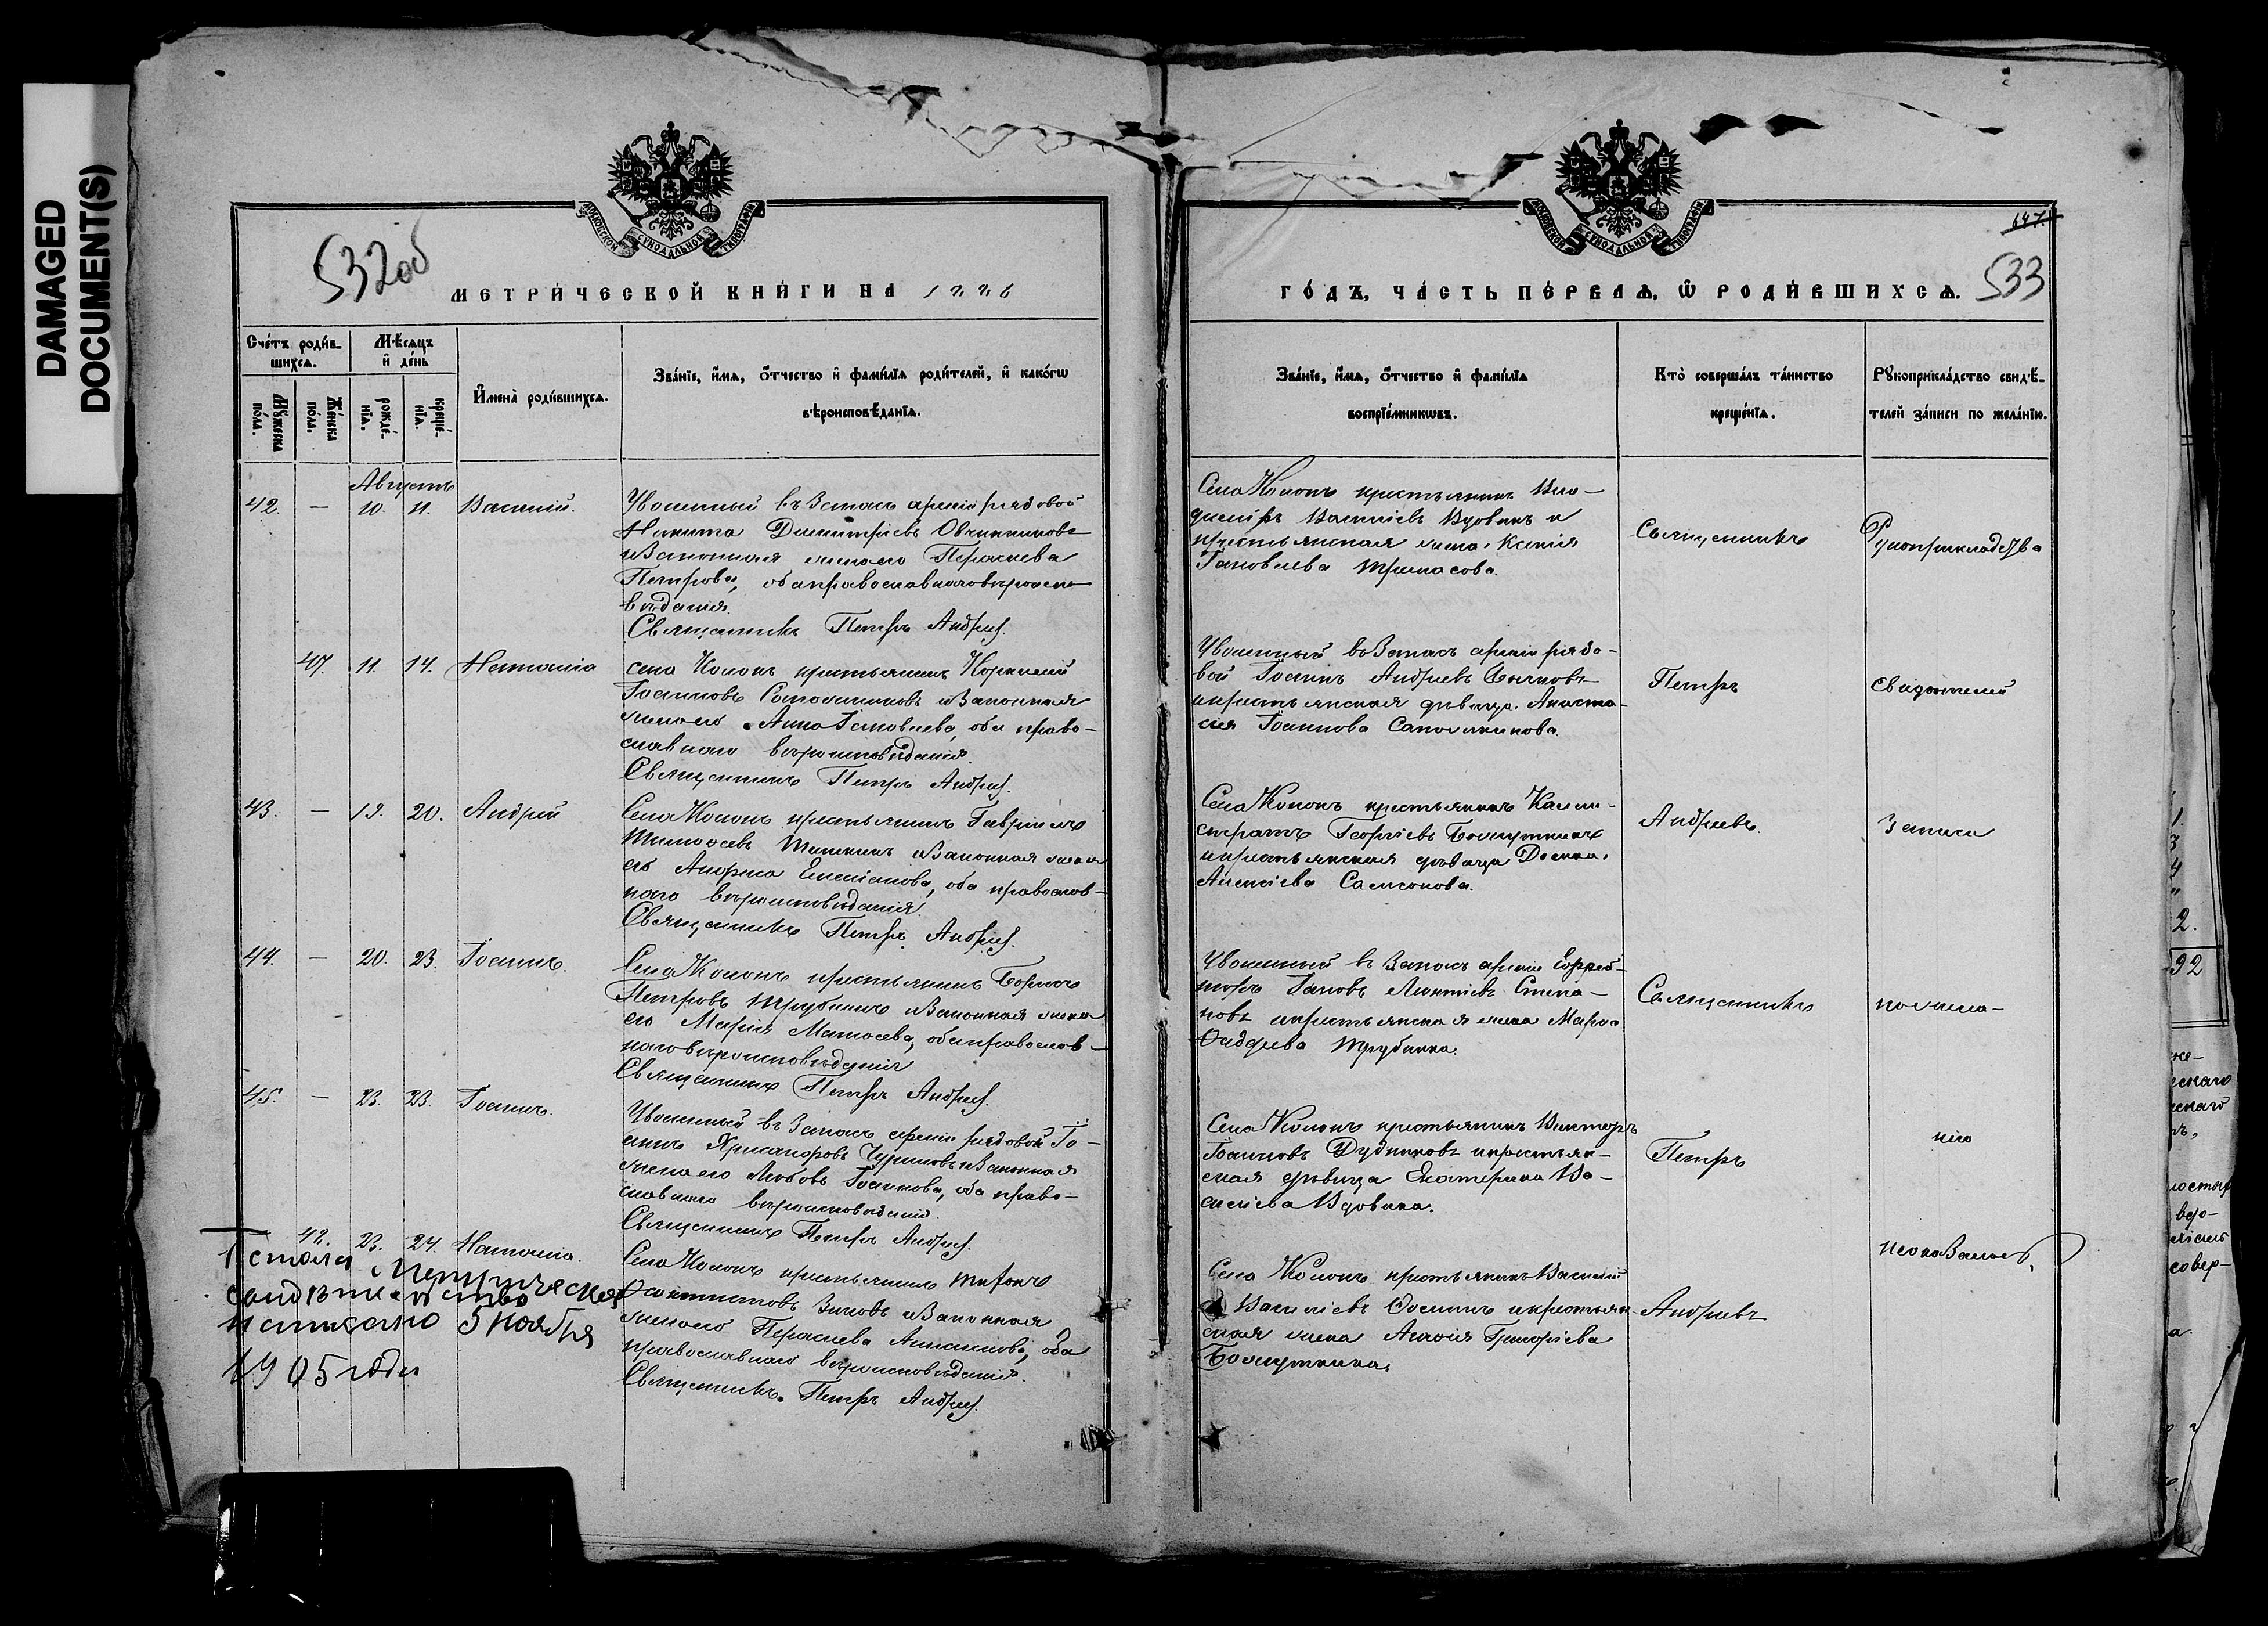 DAMAGED
DOCUMENT(S)
532об
МОСКОВСКОЙ СѴНОДАЛЬНОЙ ТИПОГРАФІИ
МЕТРИ́ЧЕСКОЙ КНИ́ГИ НА 1886
Сче́тъ роди́в-
шихсѧ.
Мѣ́сѧцъ
и҆ де́нь
Мꙋ́жеска
по́ла.
Же́нска
по́ла.
рожде́-
нїѧ.
креще́-
нїѧ.
И҆мена̀ роди́вшихсѧ.
Зва́нїе, и҆́мѧ, ѻ҆́тчество и҆ фами́лїѧ роди́телей, и҆ како́гѡ
вѣроисповѣ́данїѧ.
Августъ
42. — 10. 11. Василій.
Уволенный въ Запасъ арміи рядовой
Никита Димитріевъ Овчинниковъ
и Законная жена его Параскева
Петрова, оба православнаго вѣроиспо-
вѣданія.
Священникъ Петръ Андреев.
47. 11. 14. Наталія
села Колонъ крестьянинъ Корнилій
Іоанновъ Сапожниковъ и Законная
жена его Анна Іаковлева, оба право-
славнаго вѣроисповѣданія.
Священникъ Петръ Андреев.
43. — 19. 20. Андрей
Села Колонъ крестьянинъ Гавріилъ
Тимоѳеевъ и Законная жена
его Анфиса Емеліанова, оба православ-
наго вѣроисповѣданія.
Священникъ Петръ Андреев.
44. — 20. 23. Іоаннъ.
Села Колонъ крестьянинъ
Петровъ Трубинъ и Законная жена
его Марія Матѳеева, оба православ-
наго вѣроисповѣданія
Священникъ Петръ Андреев.
45. — 23. 23. Іоаннъ.
Уволенный въ Запасъ арміи рядовой Іо-
аннъ Хрисанфовъ и Законная
жена его Любовь Іоаннова, оба право-
славнаго вѣроисповѣданія.
Священникъ Петръ Андреев.
48. 23. 24. Наталія.
Села Колонъ крестьянинъ
Ѳеоктистовъ Зиновъ и Законная
жена его Параскева оба
православнаго вѣроисповѣданія.
Священникъ Петръ Андреев.
метрическое
свидѣтельство
написано 5 Ноября
1905 года
647.
533
МОСКОВСКОЙ СѴНОДАЛЬНОЙ ТИПОГРАФІИ
ГО́ДЪ, ЧА́СТЬ ПЕ́РВАѦ, Ѡ҆ РОДИ́ВШИХСѦ.
Зва́нїе, и҆́мѧ, ѻ҆́тчество и҆ фами́лїѧ
воспрїе́мникѡвъ.
Кто̀ соверша́лъ та́инство
креще́нїѧ.
Рꙋкоприкла́дство свидѣ́-
телей за́писи по жела́нїю.
Села Колонъ крестьянинъ Вла-
диміръ Василіевъ Вдовинъ и
крестьянская жена Ксенія
Іаковлева
Священникъ
Рукоприкладства
Уволенный въ Запасъ арміи рядо-
вой Іоаннъ Андреевъ Бычковъ
и крестьянская дѣвица Анаста-
сія Іоаннова Сапожникова.
Петръ
свидѣтелей
Села Колонъ крестьянинъ Калли-
стратъ Георгіевъ
и крестьянская дѣвица Домна
Алексіева Самсонова.
Андреевъ.
записи
Уволенный въ Запасъ арміи Ефрей-
торъ Іаковъ Леонтіевъ Степа-
новъ и крестьянская жена
Ѳаддеева Трубина.
Священникъ
по жела-
Села Колонъ крестьянинъ Викторъ
Іоанновъ Дудниковъ и крестьян-
ская дѣвица Екатерина Ва-
силіева Вдовина.
Петръ
нію
Села Колонъ крестьянинъ Василій
Василіевъ и крестьян-
ская жена Агаѳія Григоріева
Андреевъ